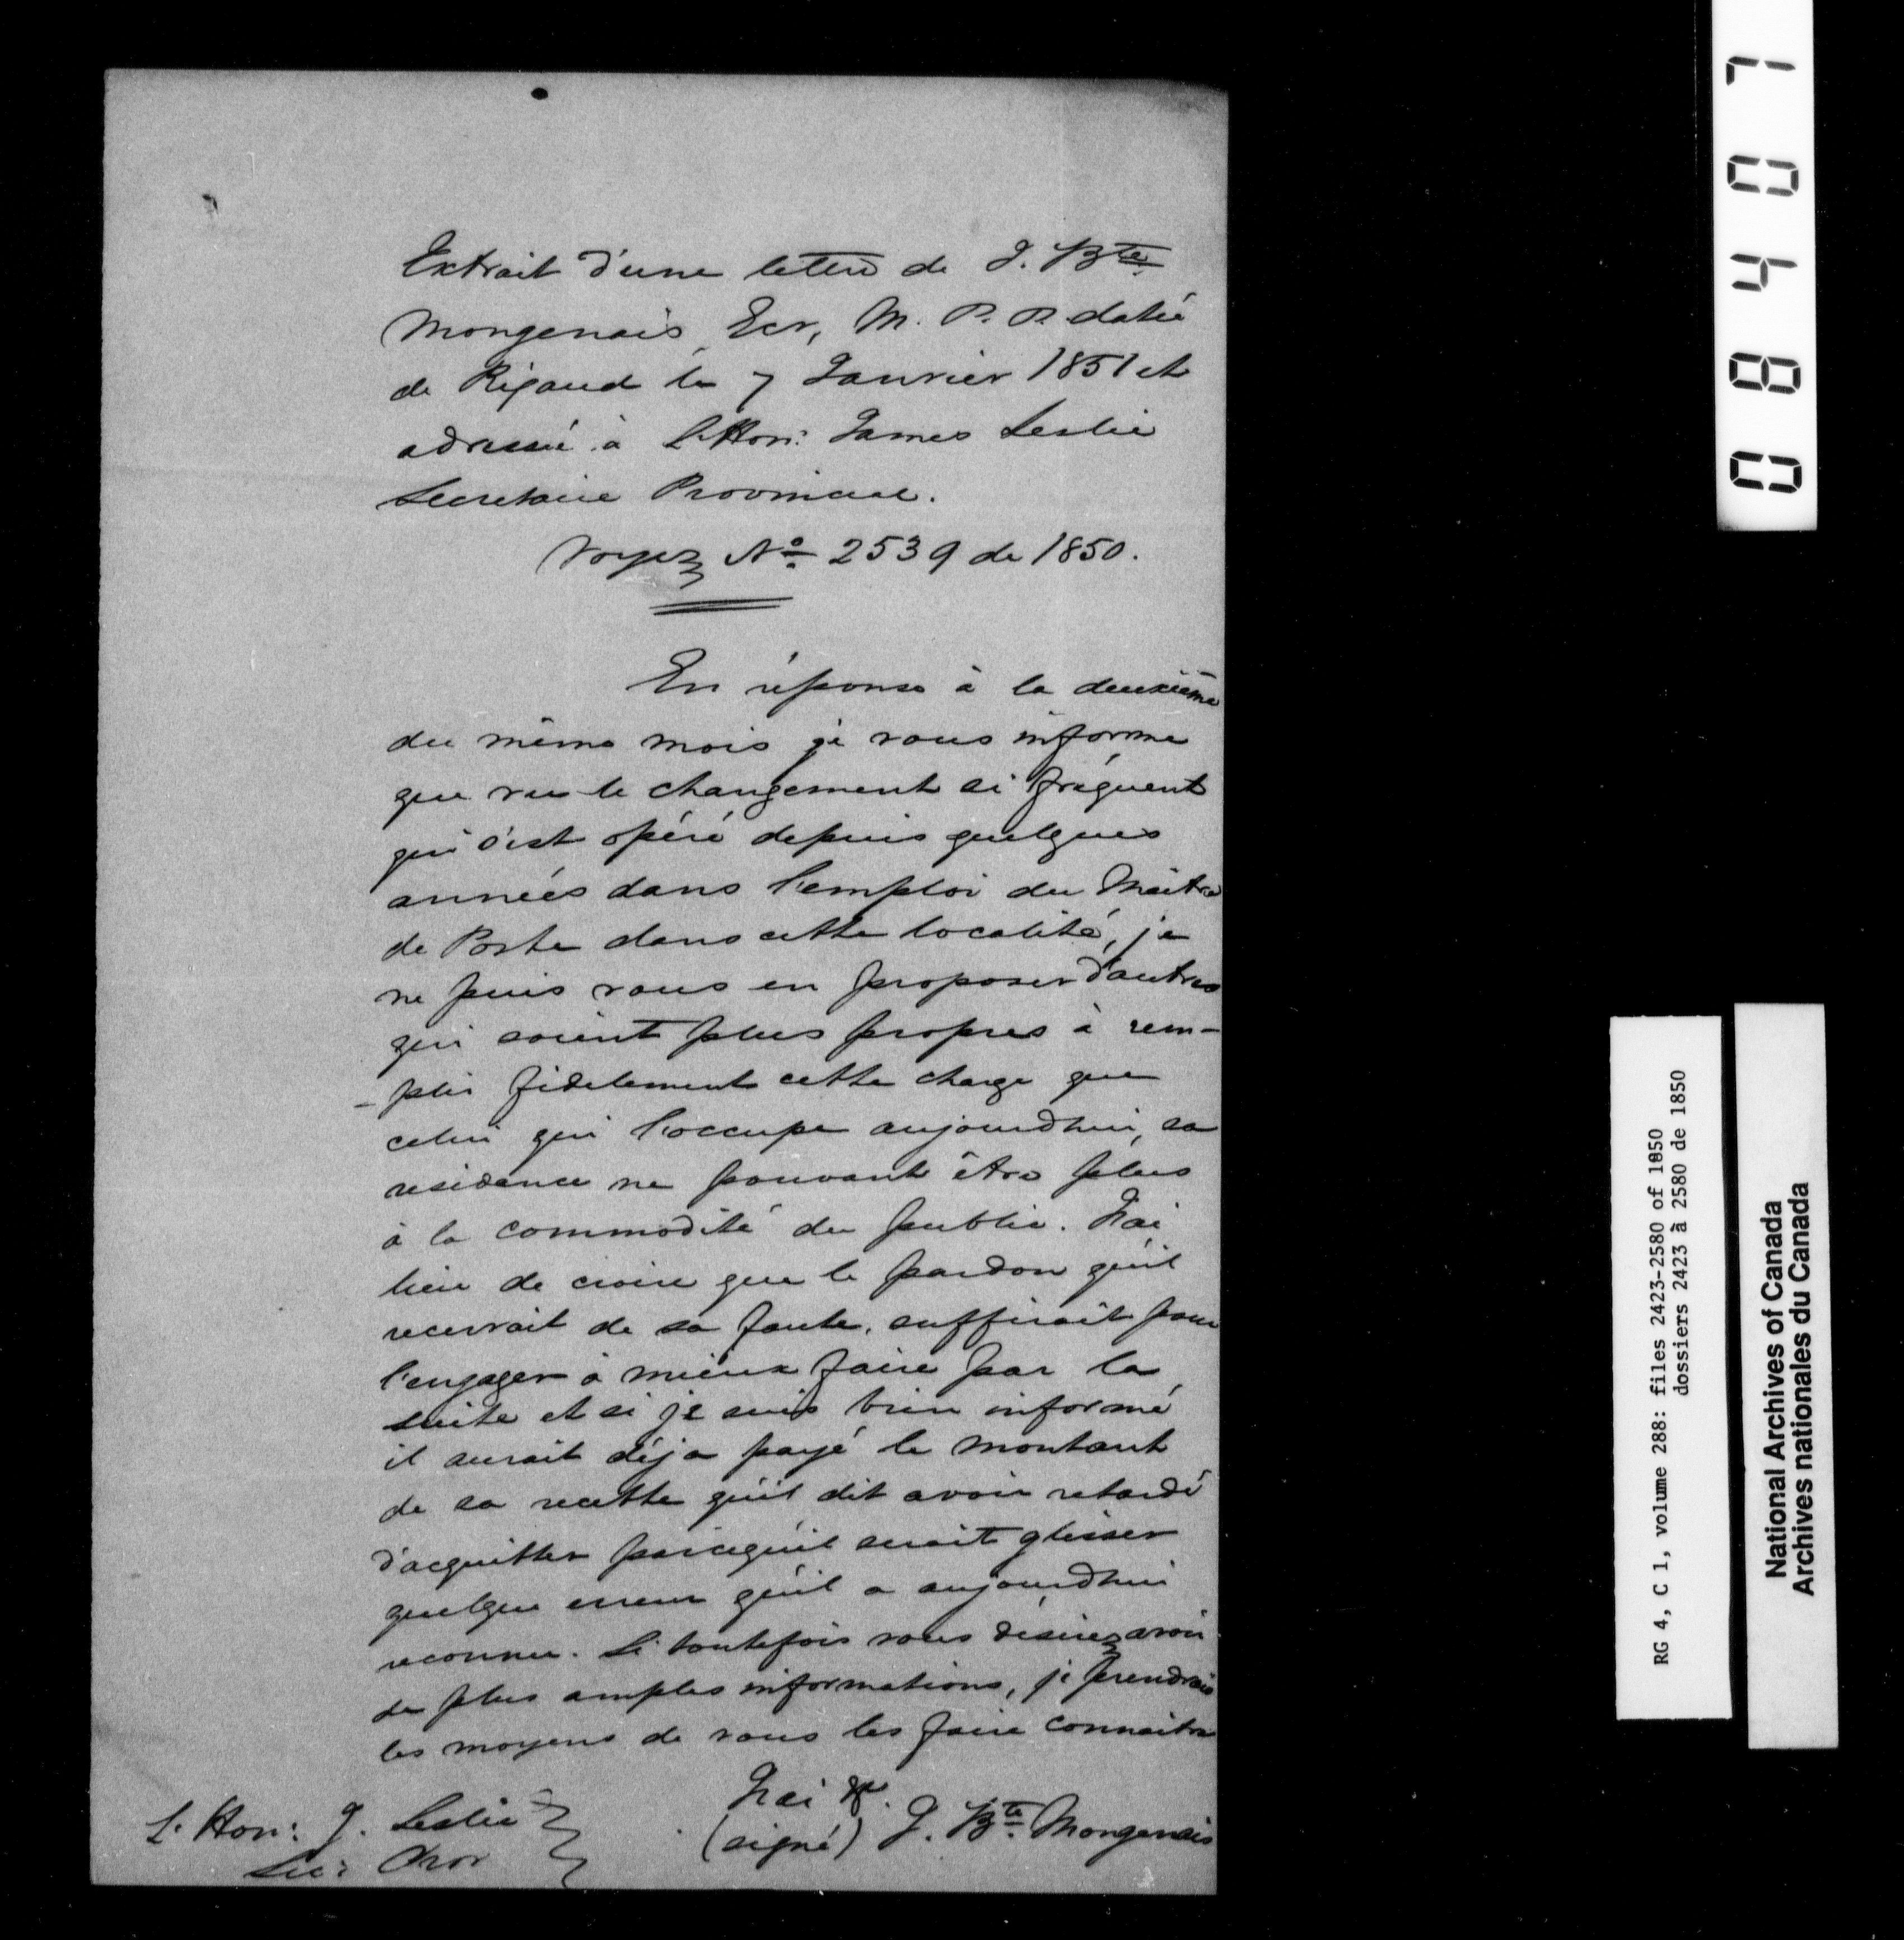 Extrait d'une lettre de J. Bte
Mongenais Ecr, M. P. P. datée
de Rigaud le 7 Janvier 1851 et
adressée à L'Hon: James Leslie
Secretaire Provincial.
Voyez No. 2539 de 1850.
En réponse à la deuxième
du même mois je vous informe
que vu le changement si fréquent
qui s'est opéré depuis quelques
années dans l'emploi du Maitre
de Poste dans cette localité, je
ne puis vous en proposer d'autres
qui soient plus propres à rem-
-plir fidelement cette charge que
celui qui l'occupe aujourdhui, sa
residence ne pouvant être plus
à la commodité du public. J'ai
lieu de croire que le pardon qu'il
recevrait de sa faute, suffirait pour
l'engager à mieux faire par la
suite et si je suis bien informé
il aurait déja payé le montant
de sa recette qu'il dit avoir retardé
d'acquitter parcequ'il serait glisser
quelque erreur qu'il a aujourdhui
reconnu. Si toutefois vous désirez avoir
de plus amples informations, je prendrais
les moyens de vous les faire connaitre
J'ai &c.
(signé) J. Bte. Mongenais
L'Hon: J. Leslie
Sec: Prov
08407
RG 4, C 1, volume 288: files 2423-2580 of 1850
dossiers 2423 à 2580 de 1850
National Archives of Canada
Archives nationales du Canada